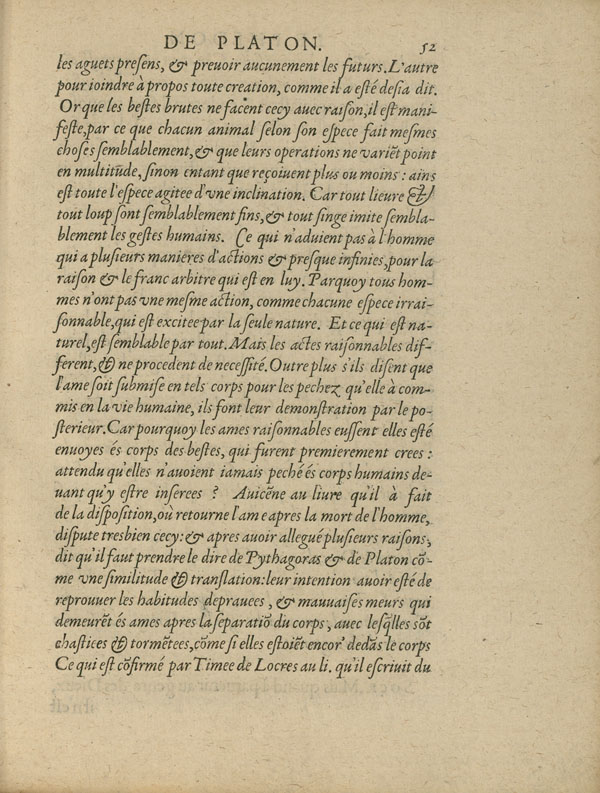 DE PLATON. 52
les aguets preſens, & preuoir aucunement les futurs. L'autre
pour ioindre à propos toute creation, comme il a eſté deſia dit.
Or que les beſtes brutes ne facent cecy auec raiſon, il eſt mani-
feſte, par ce que chacun animal ſelon ſon eſpece fait meſmes
choſes ſemblablement, & que leurs operations ne variẽt point
en multitude, ſinon entant que reçoiuent plus ou moins : ains
eſt toute l'eſpece agitee d'vne inclination. Car tout lieure &
tout loup ſont ſemblablement fins, & tout ſinge imite ſembla-
blement les geſtes humains. Ce qui n'aduient pas à l'homme
qui a pluſieurs manieres d'actions & preſque infinies, pour la
raiſon & le franc arbitre qui eſt en luy. Parquoy tous hom-
mes n'ont pas vne meſme action, comme chacune eſpece irrai-
ſonnable, qui eſt excitee par la ſeule nature. Et ce qui eſt na-
turel, eſt ſemblable par tout. Mais les actes raiſonnables dif-
ferent, & ne procedent de neceſſité. Outre plus s'ils diſent que
l'ame ſoit ſubmiſe en tels corps pour les pechez qu'elle à com-
mis en la vie humaine, ils font leur demonſtration par le po-
ſterieur. Car pourquoy les ames raiſonnables euſſent elles eſté
enuoyes és corps des beſtes, qui furent premierement crees :
attendu qu'elles n'auoient iamais peché és corps humains de-
uant qu'y eſtre inſerees ? Auicẽne au liure qu'il à fait
de la diſpoſition, où retourne l'ame apres la mort de l'homme,
diſpute treſbien cecy: & apres auoir allegué pluſieurs raiſons,
dit qu'il faut prendre le dire de Pythagoras & de Platon cõ-
me vne ſimilitude & tranſlation: leur intention auoir eſté de
reprouuer les habitudes deprauees, & mauuaiſes meurs qui
demeurẽt és ames apres la ſeparatiõ du corps, auec leſq̃lles sõt
chaſtiees & tormẽtees, cõme ſi elles eſtoiẽt encor' dedãs le corps
Ce qui eſt cõfirmé par Timee de Locres au li. qu'il eſcriuit du